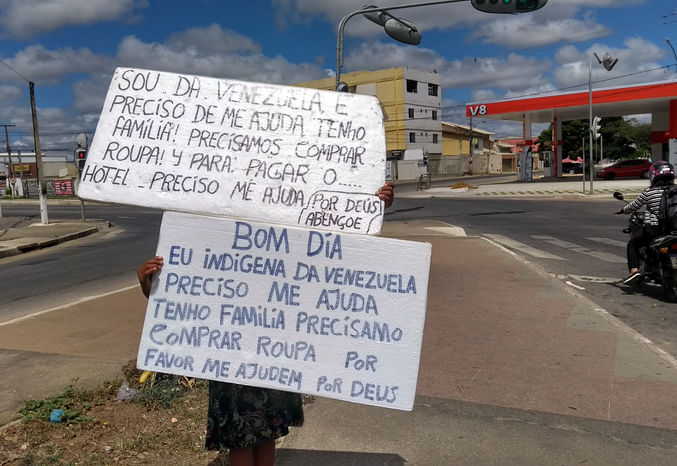 SOU DA VENEZUELA E
PRECISO DE ME AJUDA TENHO
FAMILIA! PRECISAMOS COMPRAR
ROUPA! Y PARA PAGAR O
HOTEL - PRECISO ME AJUDA (POR DEUS
ABENÇOE)
BOM DIA
EU INDÍGENA DA VENEZUELA
PRECISO ME AJUDA
TENHO FAMILIA PRECISAMO
COMPRAR ROUPA POR
FAVOR ME AJUDEM POR DEUS
V8